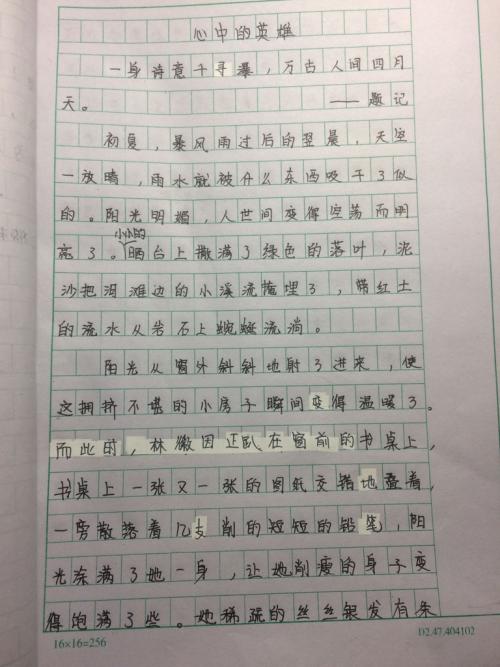 心中的英雄
一身诗意千寻瀑，万古人间四月
天。 ——题记
初夏，暴风雨过后的翌晨，天空
一放晴，雨水就被什么东西吸干了似
的。阳光明媚，人世间变得空荡而明
亮了。小小的晒台上撒满了绿色的落叶，泥
沙把河滩边的小溪流掩埋了，带红土
的流水从岩石上蜿蜒流淌。
阳光从窗外斜斜地射了进来，使
这拥挤不堪的小房子瞬间变得温暖了。
而此时，林徽因正趴在窗前的书桌上，
书桌上一张又一张的图纸交错地叠着，
一旁散落着几支削的短短的铅笔，阳
光涂满了她一身，让她削瘦的身子变
得饱满了些。她稀疏的丝丝银发有条
16×16=256
D2.47.404102